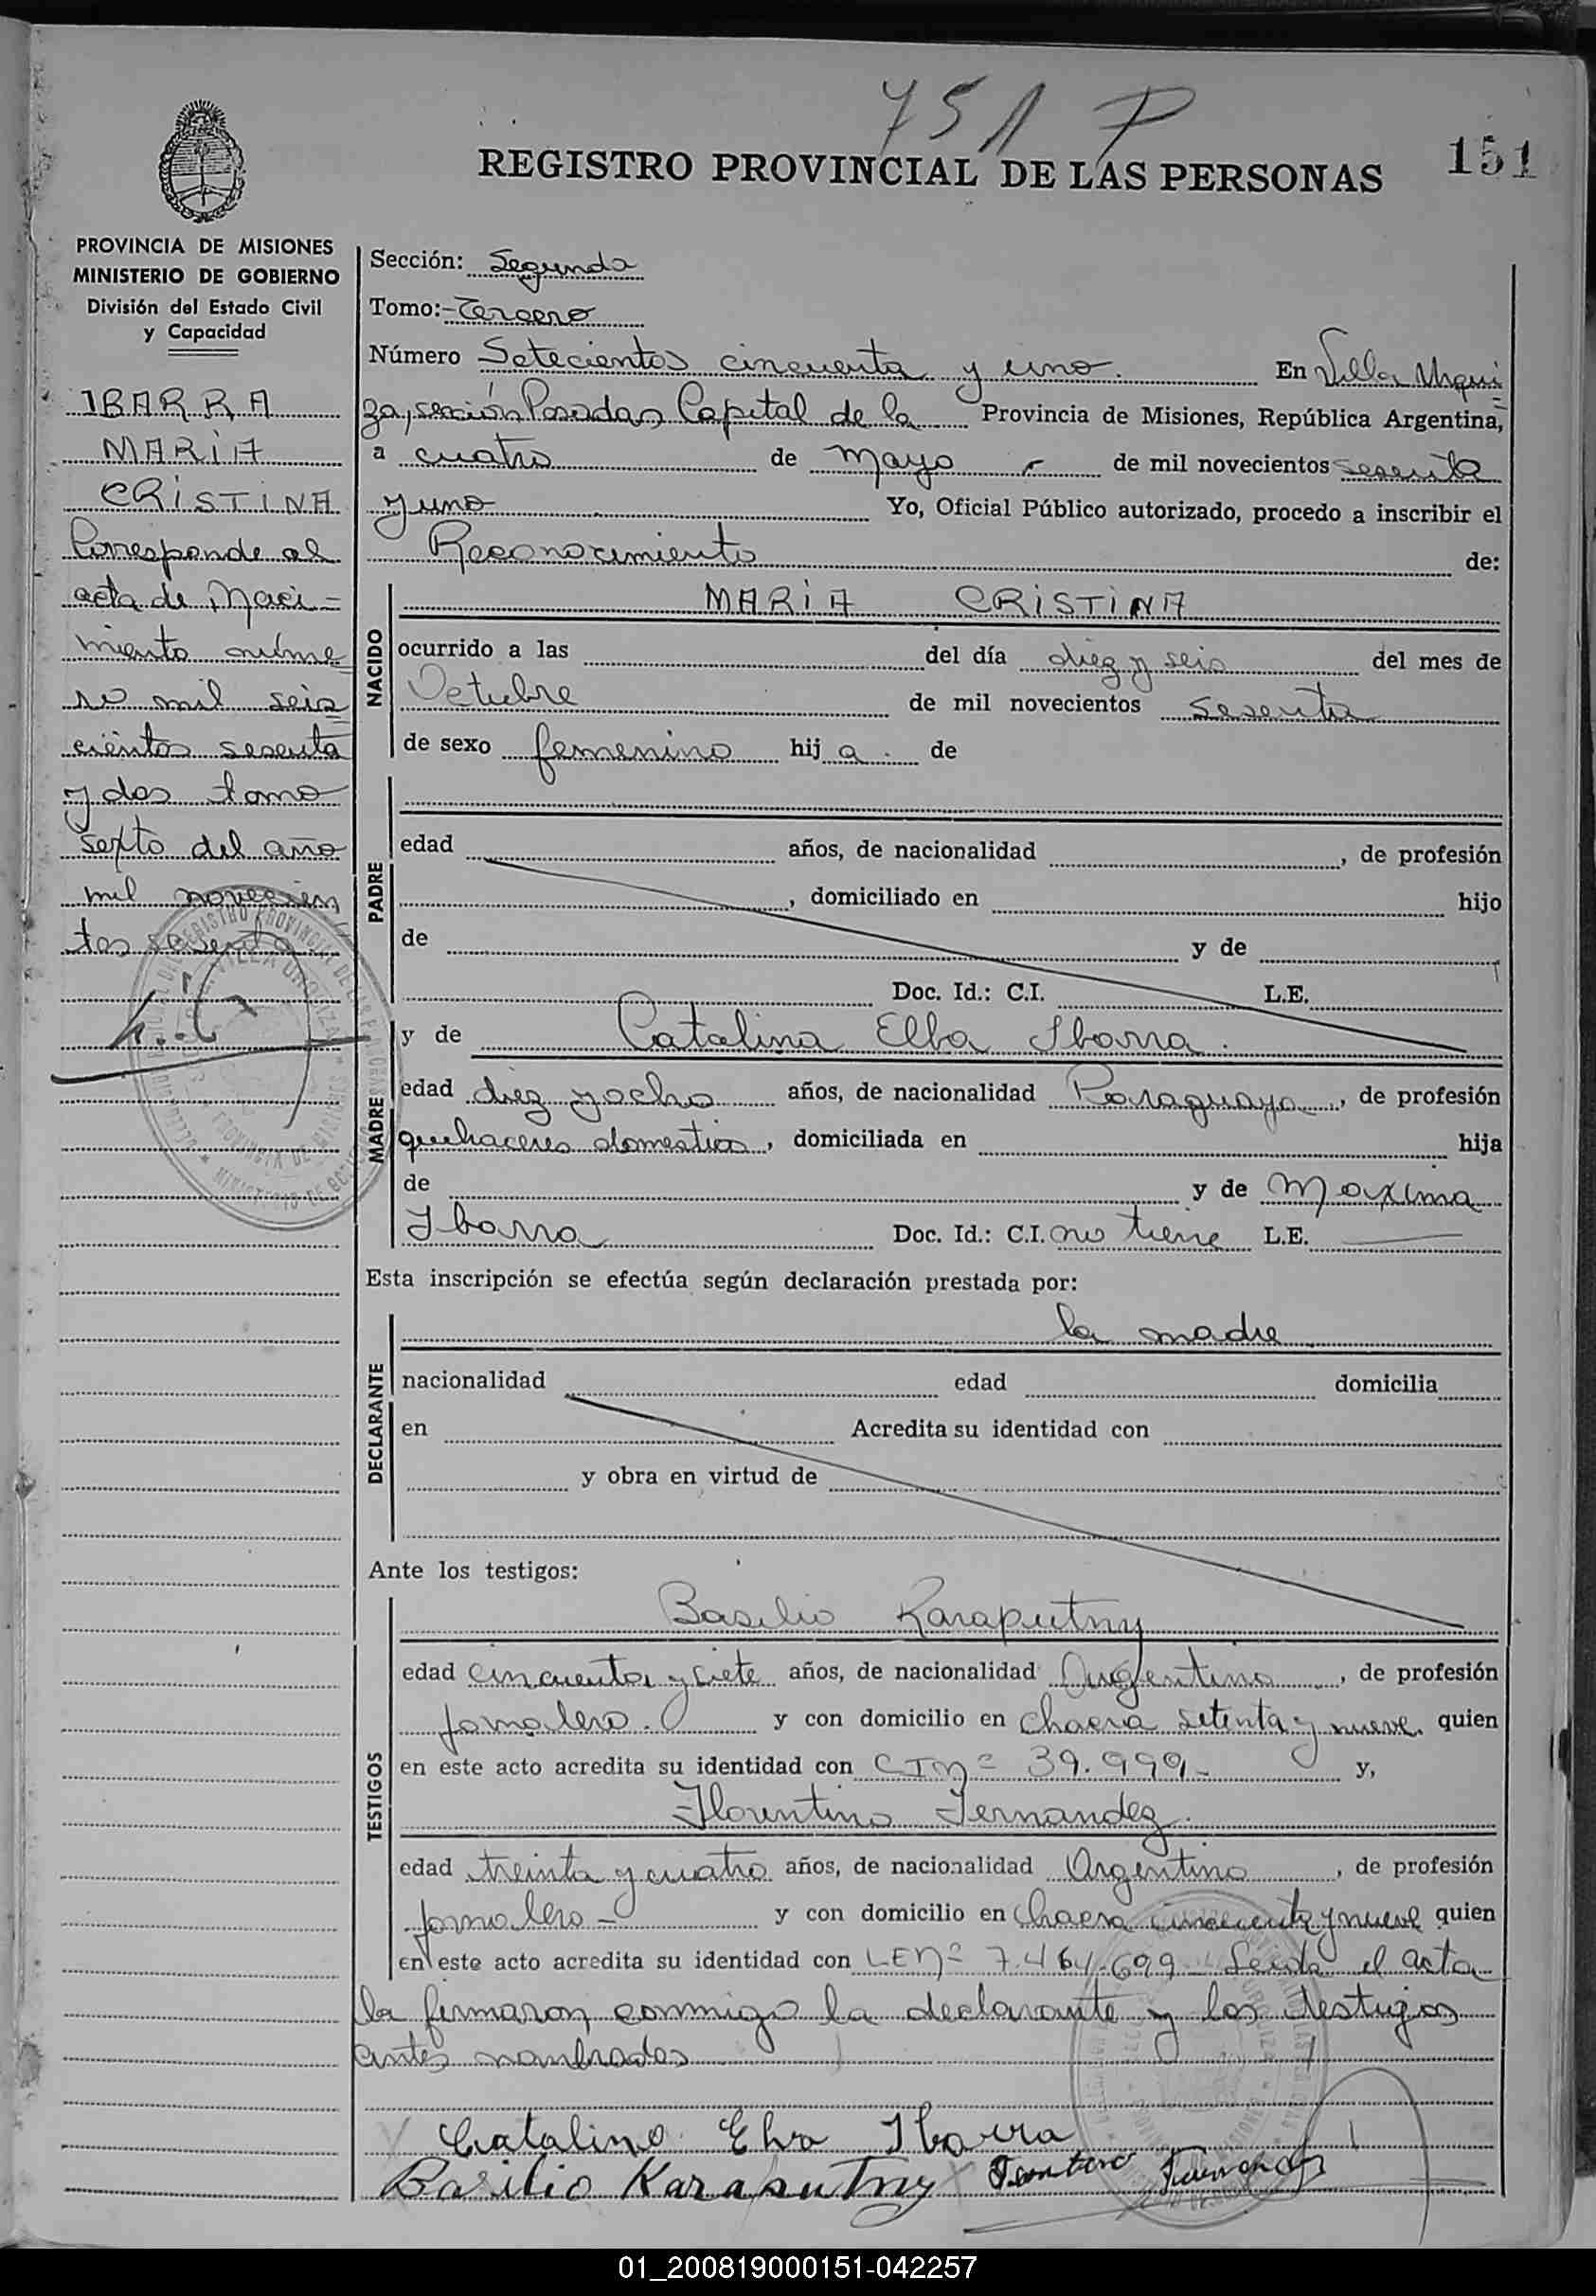 751 P
REGISTRO PROVINCIAL DE LAS PERSONAS
151
PROVINCIA DE MISIONES
MINISTERIO DE GOBIERNO
División del Estado Civil
y Capacidad
IBARRA
MARIA
CRISTINA
Corresponde al
acta de Naci=
miento núme
ro mil seis
cientos sesenta
y dos tomo
sexto del año
mil novecien
tos sesenta
Sección: Segunda
Tomo: Tercero
Número Setecientos cincuenta y uno. En Villa Urqui
za, sección Posadas, Capital de la Provincia de Misiones, República Argentina,
a cuatro de mayo de mil novecientos sesenta
y uno Yo, Oficial Público autorizado, procedo a inscribir el
Reconocimiento de:
NACIDO
MARIA CRISTINA
ocurrido a las del día diez y seis del mes de
Octubre de mil novecientos sesenta
de sexo femenino hij a. de
PADRE
edad años, de nacionalidad , de profesión
, domiciliado en hijo
de y de
Doc. Id.: C.I. L.E.
MADRE
y de Catalina Elba Ibarra.
edad diez y ocho años, de nacionalidad Paraguaya, de profesión
quehaceres domesticos, domiciliada en hija
de y de Maxima
Ibarra Doc. Id.: C.I. no tiene L.E.
Esta inscripción se efectúa según declaración prestada por:
DECLARANTE
la madre
nacionalidad edad domicilia
en Acredita su identidad con
y obra en virtud de
Ante los testigos:
TESTIGOS
Basilio Karaputny
edad cincuenta y siete años, de nacionalidad Argentino, de profesión
jornalero. y con domicilio en chacra setenta y nueve. quien
en este acto acredita su identidad con CI Nº 39.999- y,
Florentino Fernandez.
edad treinta y cuatro años, de nacionalidad Argentino, de profesión
jornalero- y con domicilio en Chacra cincuenta y nueve quien
en este acto acredita su identidad con LE Nº 7.464.699 Leida el acta
la firmaron conmigo la declarante y los testigos
antes nombrados
Catalina Elva Ibarra
Basilio Karaputny
01_200819000151-042257